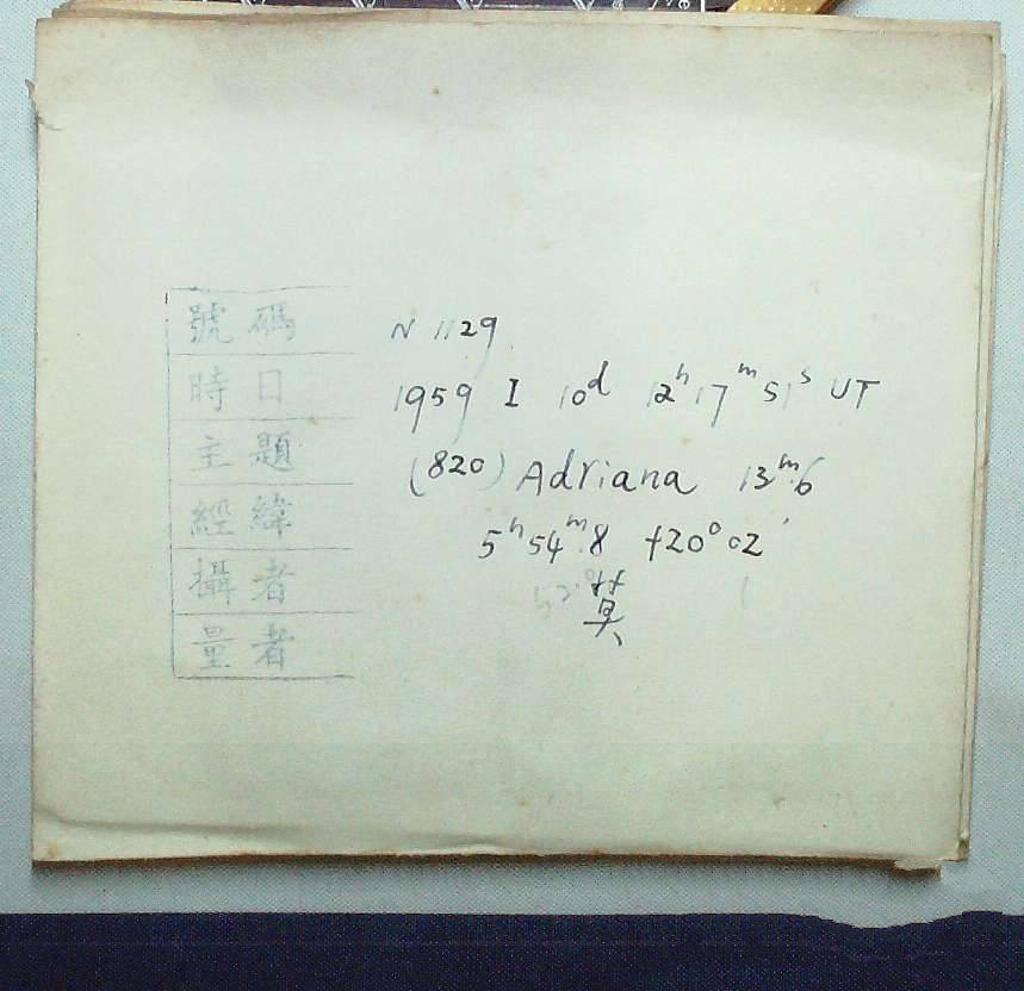 號碼 N 1129
時日 1959 I 10d 12h 17m 51s UT
主題 (820) Adriana 13m.6
經緯 5h 54m.8 +20° 02'
攝者
量者